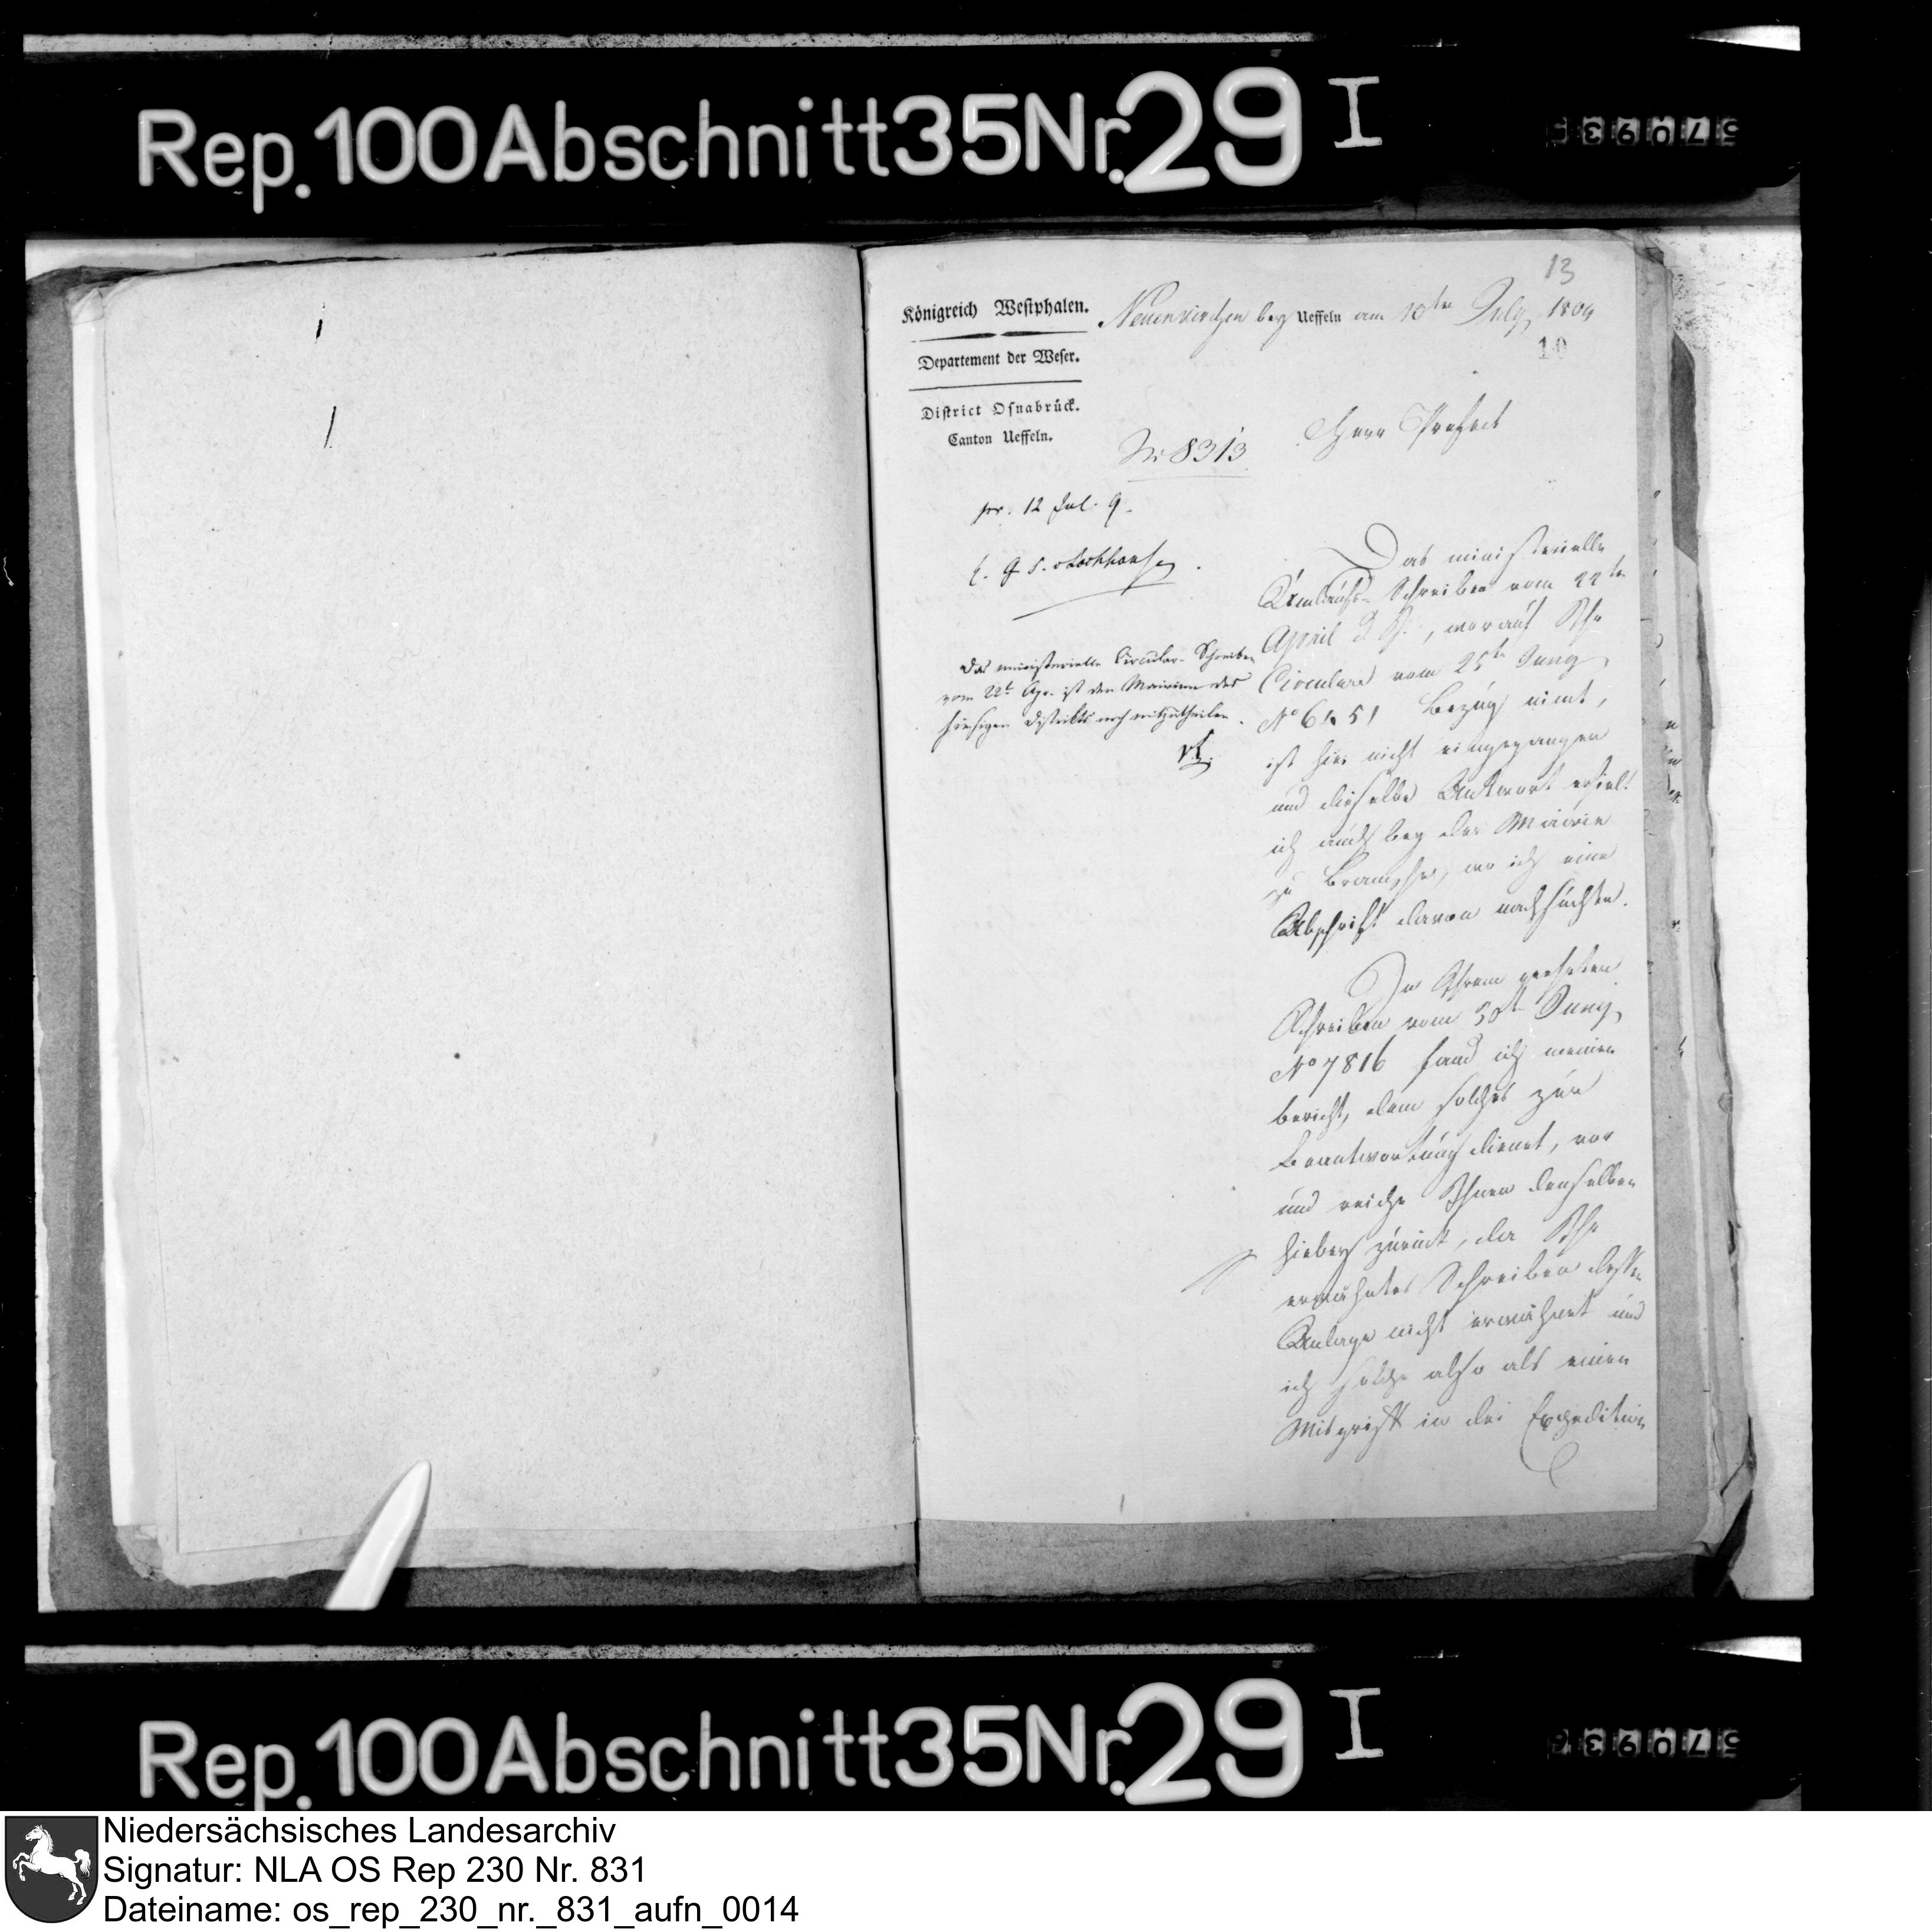 Rep. 100 Abschnitt 35 Nr. 29 I
570935
13
Königreich Westphalen.
Neuenkirchen bey Ueffeln am 10ten July 1809
10
Departement der Weser.
District Osnabrück.
Canton Ueffeln.
Herr Präfect
Nr 8313
pr. 12 Jul. 9.
Das ministerielle Circular-Schreiben
vom 22t Apr. ist den Mairien des
hiesigen Districts noch mitzutheilen.
Das ministerielle
Schreiben vom 22ten
April d. J., worauf Ihr
Circulare vom 25ten Juny
No 6451 Bezug nimt,
ist hier nicht eingegangen
und dieselbe Antwort erhielt
ich auch bey der Mairie
zu Bramsche, wo ich eine
Abschrift davon nachsuchte.
In Ihrem geehrten
Schreiben vom 30t Juny
No 7816 fand ich meinen
Bericht, dem solches zur
Beantwortung dienet, vor
und reiche Ihnen denselben
hiebey zurück, da Ihr
erwähntes Schreiben dessen
Anlage nicht erwähnet und
ich solche also als einen
Misgriff in der Expedition
Rep. 100 Abschnitt 35 Nr. 29 I
570936
Niedersächsisches Landesarchiv
Signatur: NLA OS Rep 230 Nr. 831
Dateiname: os_rep_230_nr._831_aufn_0014